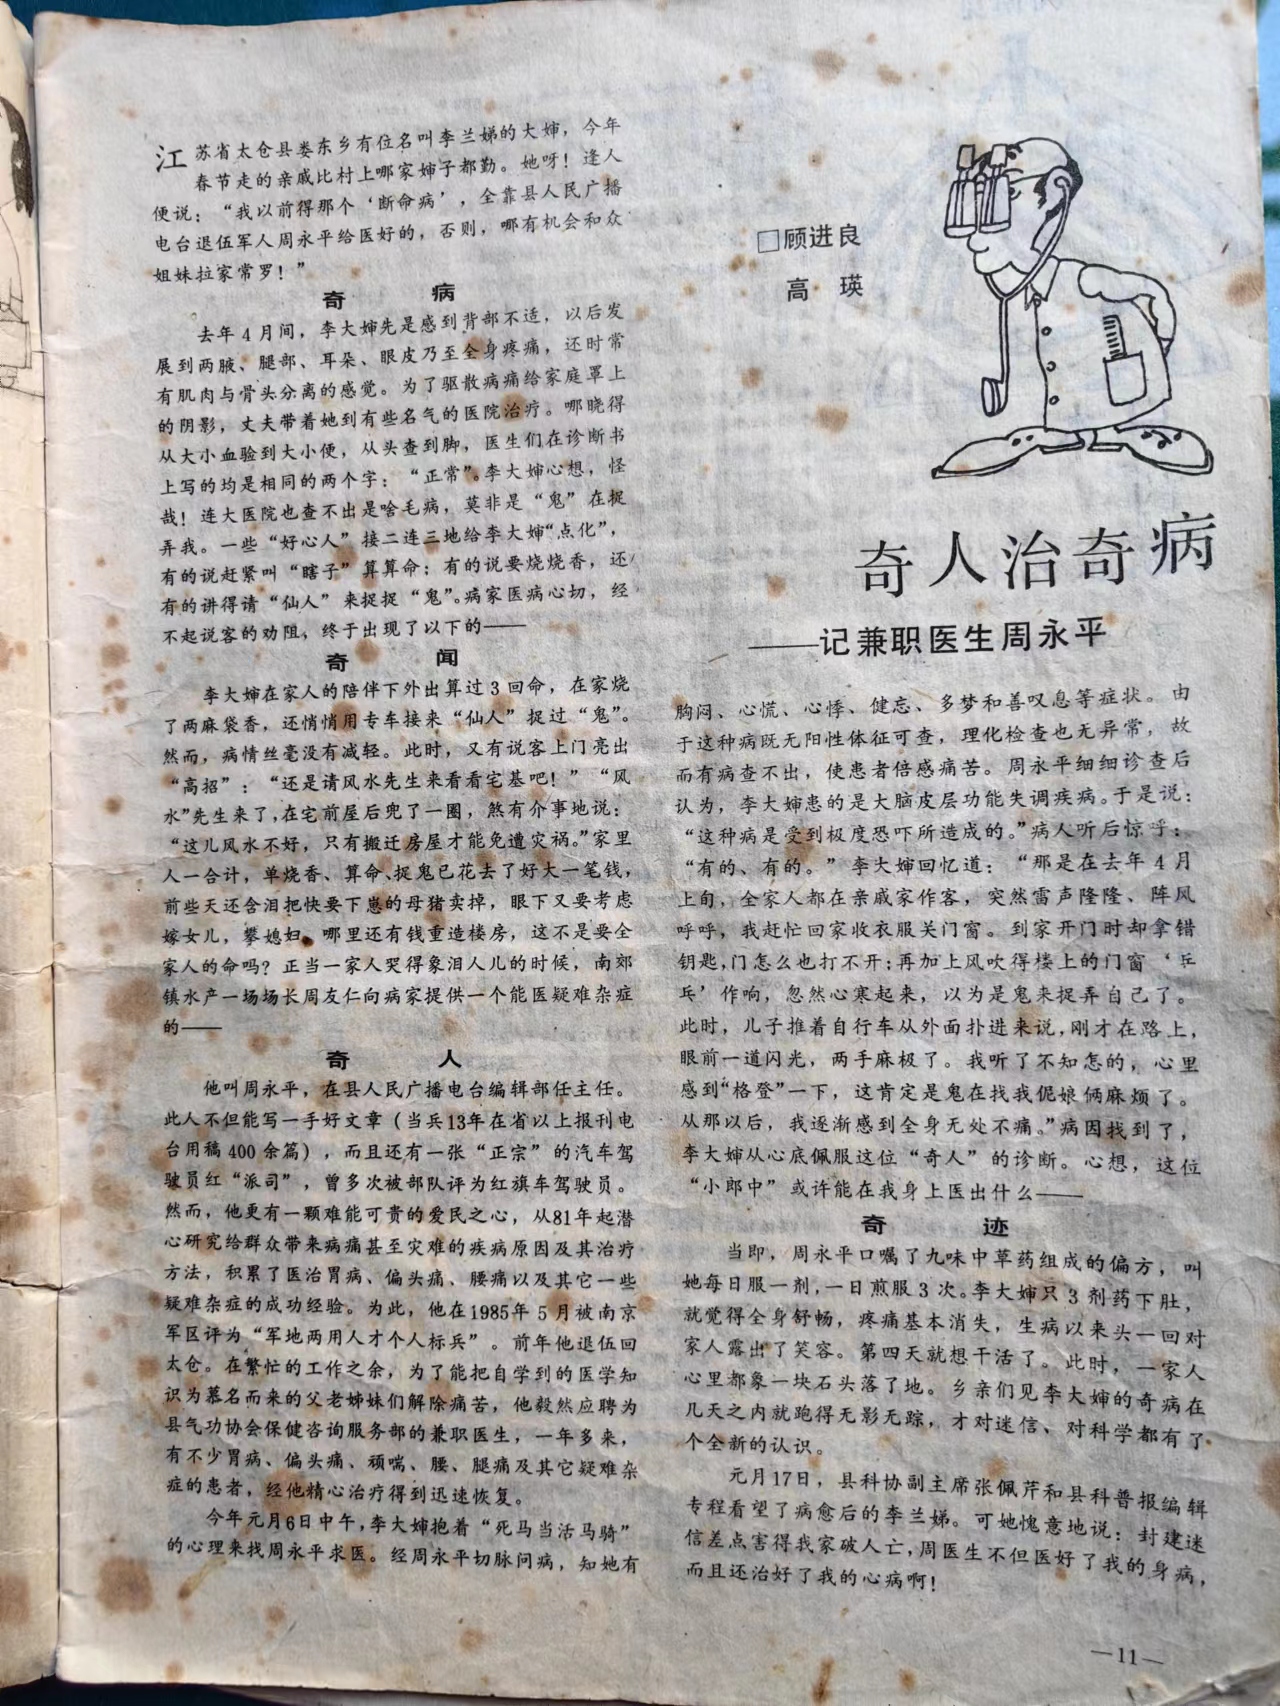 奇人治奇病
——记兼职医生周永平
□顾进良
高 瑛
江苏省太仓县娄东乡有位名叫李兰娣的大婶，今年
春节走的亲戚比村上哪家婶子都勤。她呀！逢人
便说：“我以前得那个‘断命病’，全靠县人民广播
电台退伍军人周永平给医好的，否则，哪有机会和众
姐妹拉家常罗！”
奇 病
去年4月间，李大婶先是感到背部不适，以后发
展到两腋、腿部、耳朵、眼皮乃至全身疼痛，还时常
有肌肉与骨头分离的感觉。为了驱散病痛给家庭罩上
的阴影，丈夫带着她到有些名气的医院治疗。哪晓得
从大小血验到大小便，从头查到脚，医生们在诊断书
上写的均是相同的两个字：“正常”。李大婶心想，怪
哉！连大医院也查不出是啥毛病，莫非是“鬼”在捉
弄我。一些“好心人”接二连三地给李大婶“点化”，
有的说赶紧叫“瞎子”算算命；有的说要烧烧香，还
有的讲得请“仙人”来捉捉“鬼”。病家医病心切，经
不起说客的劝阻，终于出现了以下的——
奇 闻
李大婶在家人的陪伴下外出算过3回命，在家烧
了两麻袋香，还悄悄用专车接来“仙人”捉过“鬼”。
然而，病情丝毫没有减轻。此时，又有说客上门亮出
“高招”：“还是请风水先生来看看宅基吧！”“风
水”先生来了，在宅前屋后兜了一圈，煞有介事地说：
“这儿风水不好，只有搬迁房屋才能免遭灾祸。”家里
人一合计，单烧香、算命、捉鬼已花去了好大一笔钱，
前些天还含泪把快要下崽的母猪卖掉，眼下又要考虑
嫁女儿，攀媳妇，哪里还有钱重造楼房，这不是要全
家人的命吗？正当一家人哭得象泪人儿的时候，南郊
镇水产一场场长周友仁向病家提供一个能医疑难杂症
的——
奇 人
他叫周永平，在县人民广播电台编辑部任主任。
此人不但能写一手好文章（当兵13年在省以上报刊电
台用稿400余篇），而且还有一张“正宗”的汽车驾
驶员红“派司”，曾多次被部队评为红旗车驾驶员。
然而，他更有一颗难能可贵的爱民之心，从81年起潜
心研究给群众带来病痛甚至灾难的疾病原因及其治疗
方法，积累了医治胃病、偏头痛、腰痛以及其它一些
疑难杂症的成功经验。为此，他在1985年5月被南京
军区评为“军地两用人才个人标兵”。前年他退伍回
太仓。在繁忙的工作之余，为了能把自学到的医学知
识为慕名而来的父老姊妹们解除痛苦，他毅然应聘为
县气功协会保健咨询服务部的兼职医生，一年多来，
有不少胃病、偏头痛、顽喘、腰、腿痛及其它疑难杂
症的患者，经他精心治疗得到迅速恢复。
今年元月6日中午，李大婶抱着“死马当活马骑”
的心理来找周永平求医。经周永平切脉问病，知她有
胸闷、心慌、心悸、健忘、多梦和善叹息等症状。由
于这种病既无阳性体征可查，理化检查也无异常，故
而有病查不出，使患者倍感痛苦。周永平细细诊查后
认为，李大婶患的是大脑皮层功能失调疾病。于是说：
“这种病是受到极度恐吓所造成的。”病人听后惊呼：
“有的、有的。”李大婶回忆道：“那是在去年4月
上旬，全家人都在亲戚家作客，突然雷声隆隆、阵风
呼呼，我赶忙回家收衣服关门窗。到家开门时却拿错
钥匙，门怎么也打不开；再加上风吹得楼上的门窗‘乒
乓’作响，忽然心寒起来，以为是鬼来捉弄自己了。
此时，儿子推着自行车从外面扑进来说，刚才在路上，
眼前一道闪光，两手麻极了。我听了不知怎的，心里
感到“格登”一下，这肯定是鬼在找我伲娘俩麻烦了。
从那以后，我逐渐感到全身无处不痛。”病因找到了，
李大婶从心底佩服这位“奇人”的诊断。心想，这位
“小郎中”或许能在我身上医出什么——
奇 迹
当即，周永平口嘱了九味中草药组成的偏方，叫
她每日服一剂，一日煎服3次。李大婶只3剂药下肚，
就觉得全身舒畅，疼痛基本消失，生病以来头一回对
家人露出了笑容。第四天就想干活了。此时，一家人
心里都象一块石头落了地。乡亲们见李大婶的奇病在
几天之内就跑得无影无踪，才对迷信、对科学都有了
个全新的认识。
元月17日，县科协副主席张佩芹和县科普报编辑
专程看望了病愈后的李兰娣。可她愧意地说：封建迷
信差点害得我家破人亡，周医生不但医好了我的身病，
而且还治好了我的心病啊！
—11—